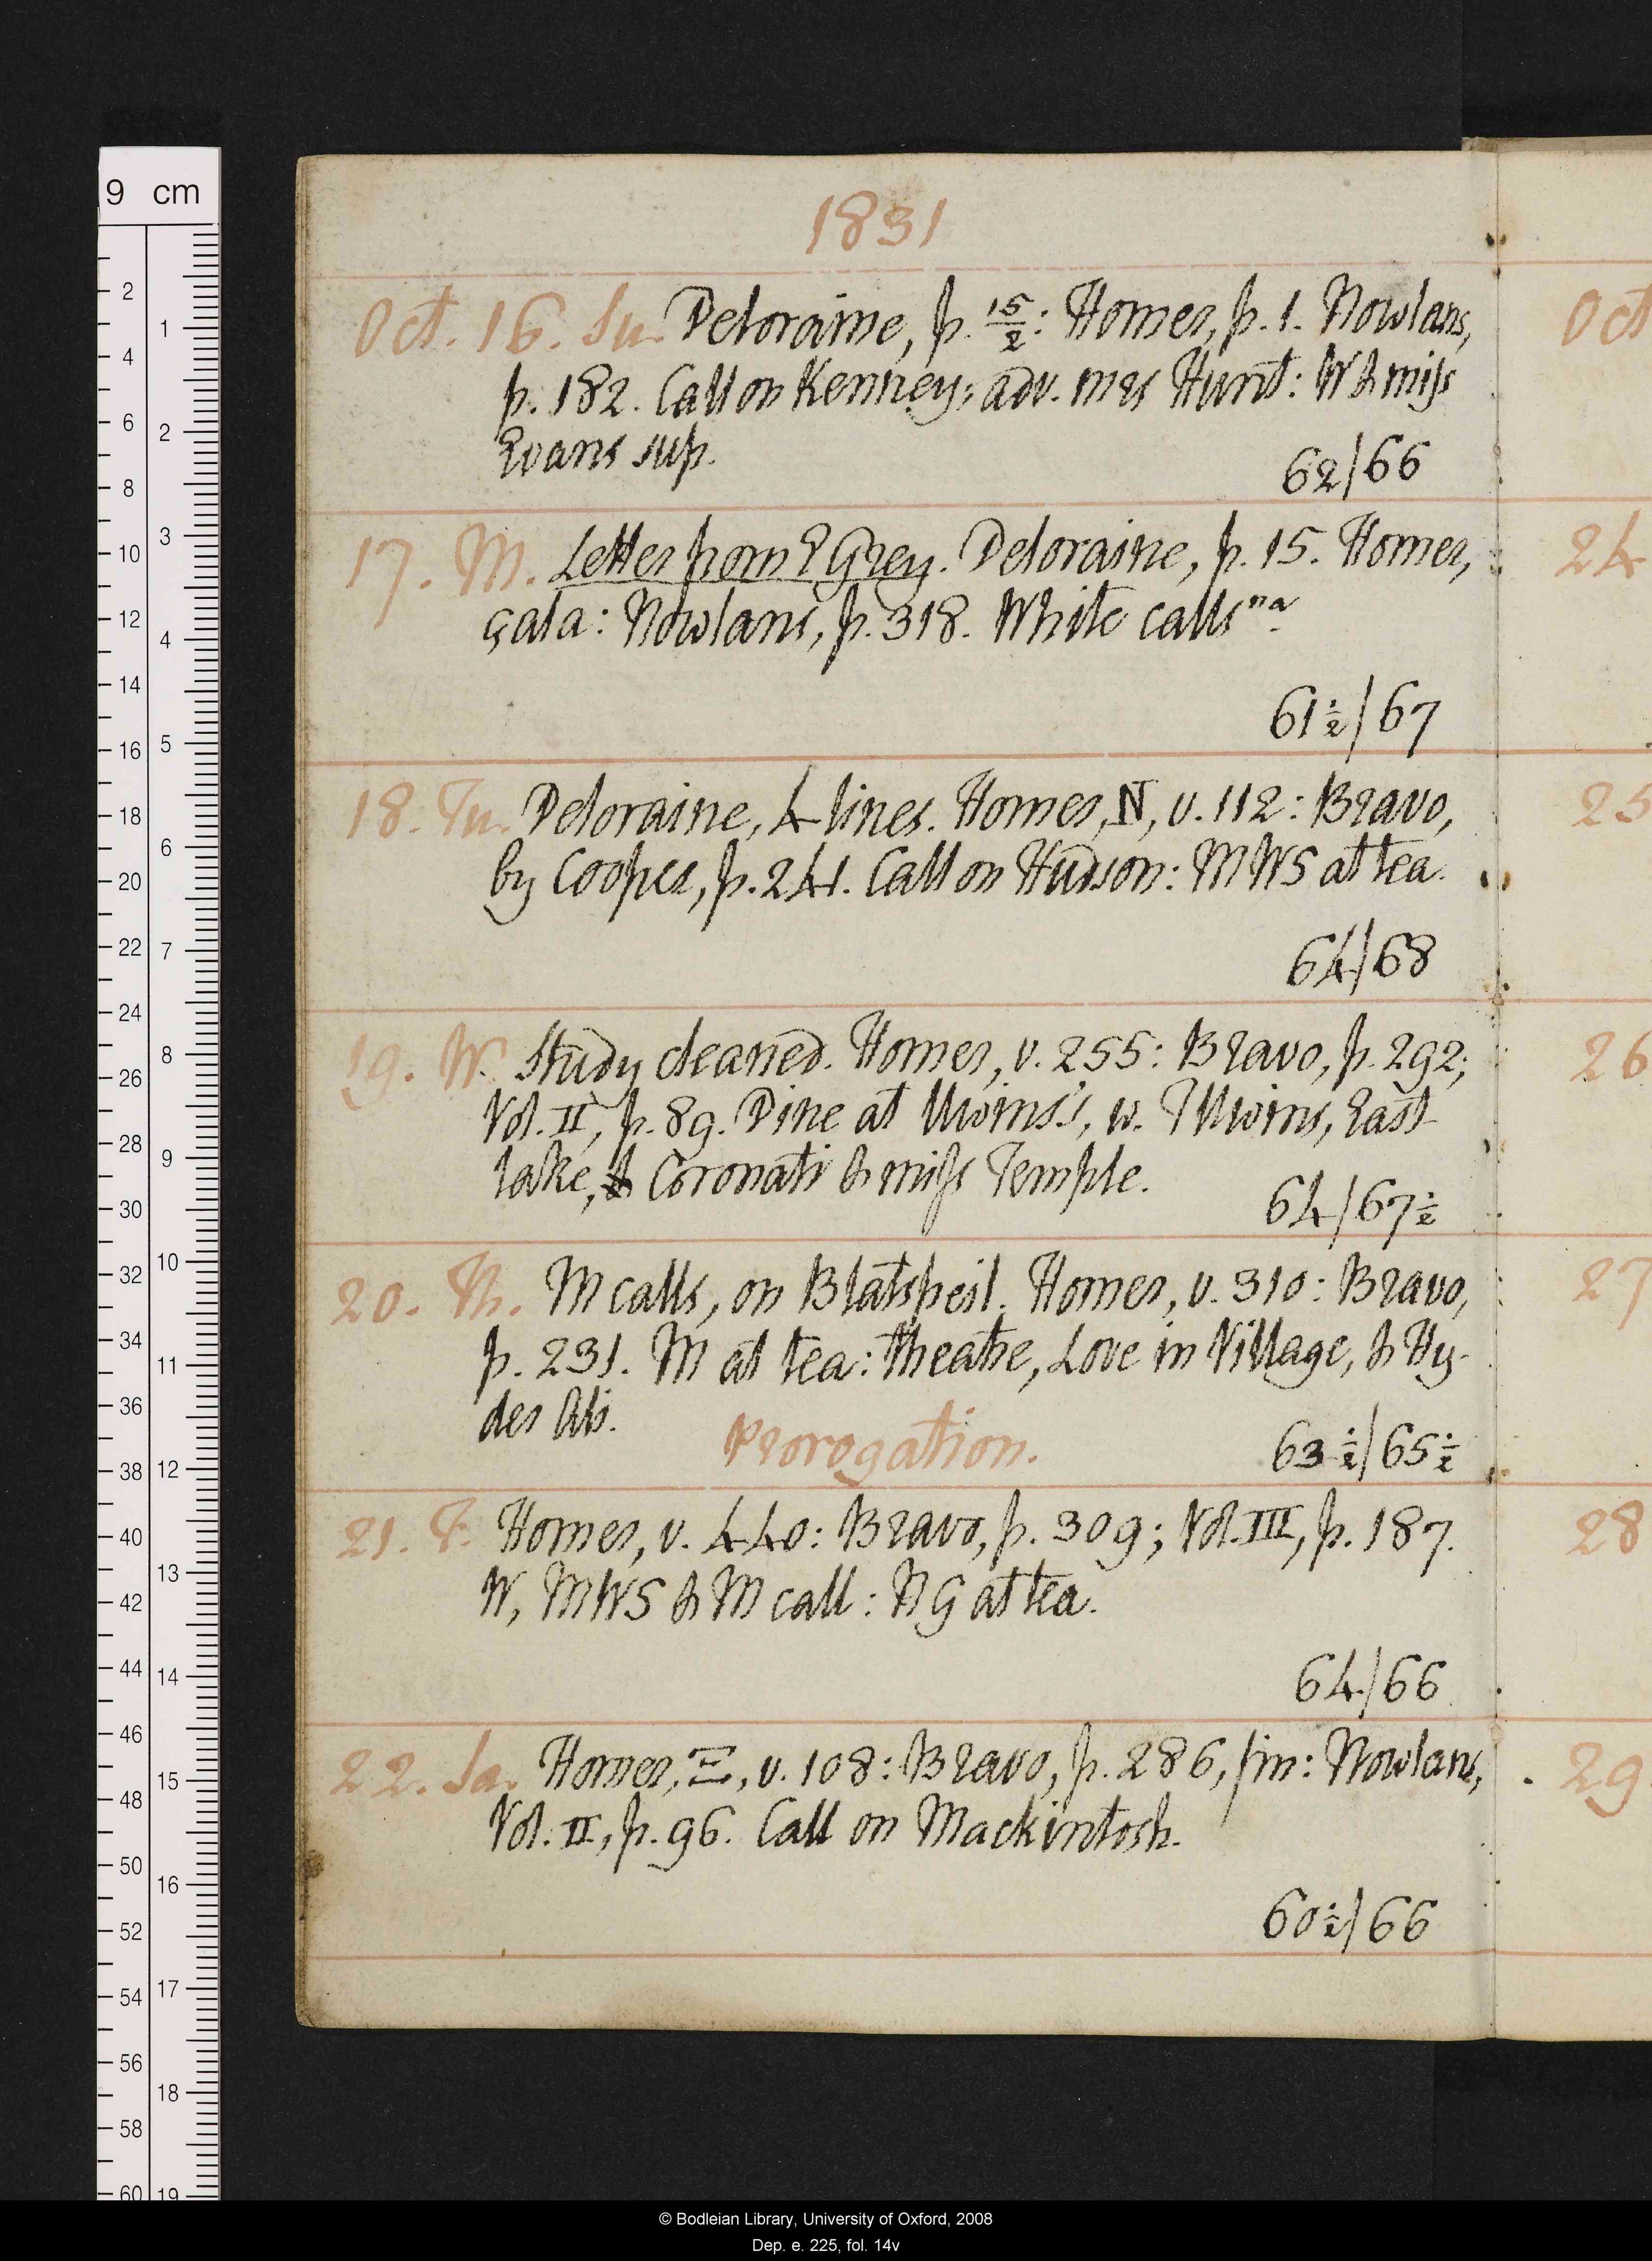 1831
Oct. 16. Su. Deloraine, p. 15/2: Homer, p. 1. Nowlans,
p. 182. Call on Kenney; adv. mrs Hunt: W & miss
Evans sup.
62/66
17. M. Letter from E Grey. Deloraine, p. 15. Homer,
çala: Nowlans, p. 318. White calls na.
61½/67
18. Tu. Deloraine, 4 lines. Homer, N, v. 112: Bravo,
by Cooper, p. 241. Call on Hudson: MWS at tea.
64/68
19. W. Study cleaned. Homer, v. 255: Bravo, p. 292;
Vol. II, p. 89. Dine at Uwins's, w. T Uwins, East-
lake, & Coronati & miss Temple.
64/67½
20. Th. M calls, on Blatspeil. Homer, v. 310: Bravo,
p. 231. M at tea: theatre, Love in Village, & Hy-
der Ali.
Prorogation.
63½/65½
21. F. Homer, v. 440: Bravo, p. 309; Vol. III, p. 187.
W, MWS & M call: N G at tea.
64/66
22. Sa. Homer, Ξ, v. 108: Bravo, p. 286, fin: Nowlans,
Vol. II, p. 96. Call on Mackintosh.
60½/66
Oct
24
25
26
27
28
29
9 cm
2 4 6 8 10 12 14 16 18 20 22 24 26 28 30 32 34 36 38 40 42 44 46 48 50 52 54 56 58 60
1 2 3 4 5 6 7 8 9 10 11 12 13 14 15 16 17 18 19
© Bodleian Library, University of Oxford, 2008
Dep. e. 225, fol. 14v